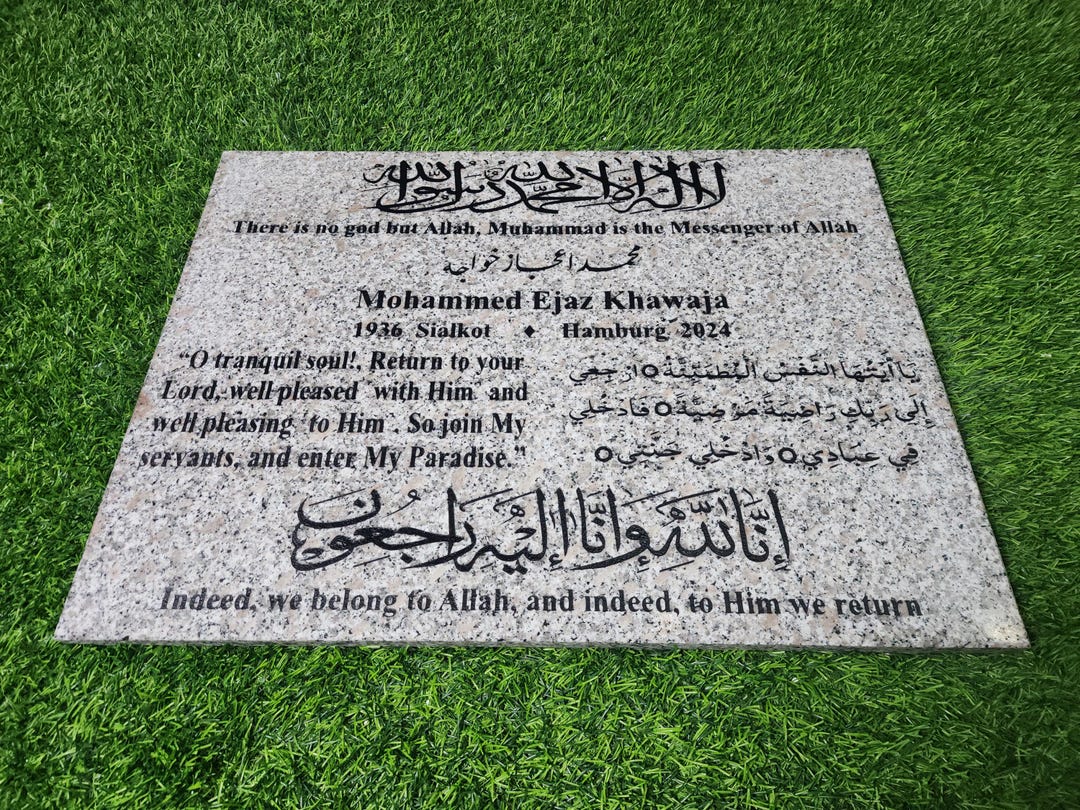 لا اله الا الله محمد رسول الله
There is no god but Allah, Muhammad is the Messenger of Allah
محمد اعجاز خواجه
Mohammed Ejaz Khawaja
1936 Sialkot ♦ Hamburg 2024
“O tranquil soul!, Return to your
Lord, well pleased with Him and
well pleasing to Him . So join My
servants, and enter My Paradise.”
يَا أَيَّتُهَا النَّفْسُ الْمُطْمَئِنَّةُ ○ ارْجِعِي
إِلَى رَبِّكِ رَاضِيَةً مَرْضِيَّةً ○ فَادْخُلِي
فِي عِبَادِي ○ وَادْخُلِي جَنَّتِي ○
إِنَّا لِلَّهِ وَإِنَّا إِلَيْهِ رَاجِعُونَ
Indeed, we belong to Allah, and indeed, to Him we return